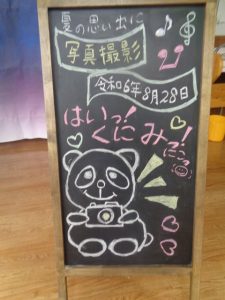 夏の思い出に
写真撮影
令和6年8月28日
はいっ!
くにみっ!
にこっ